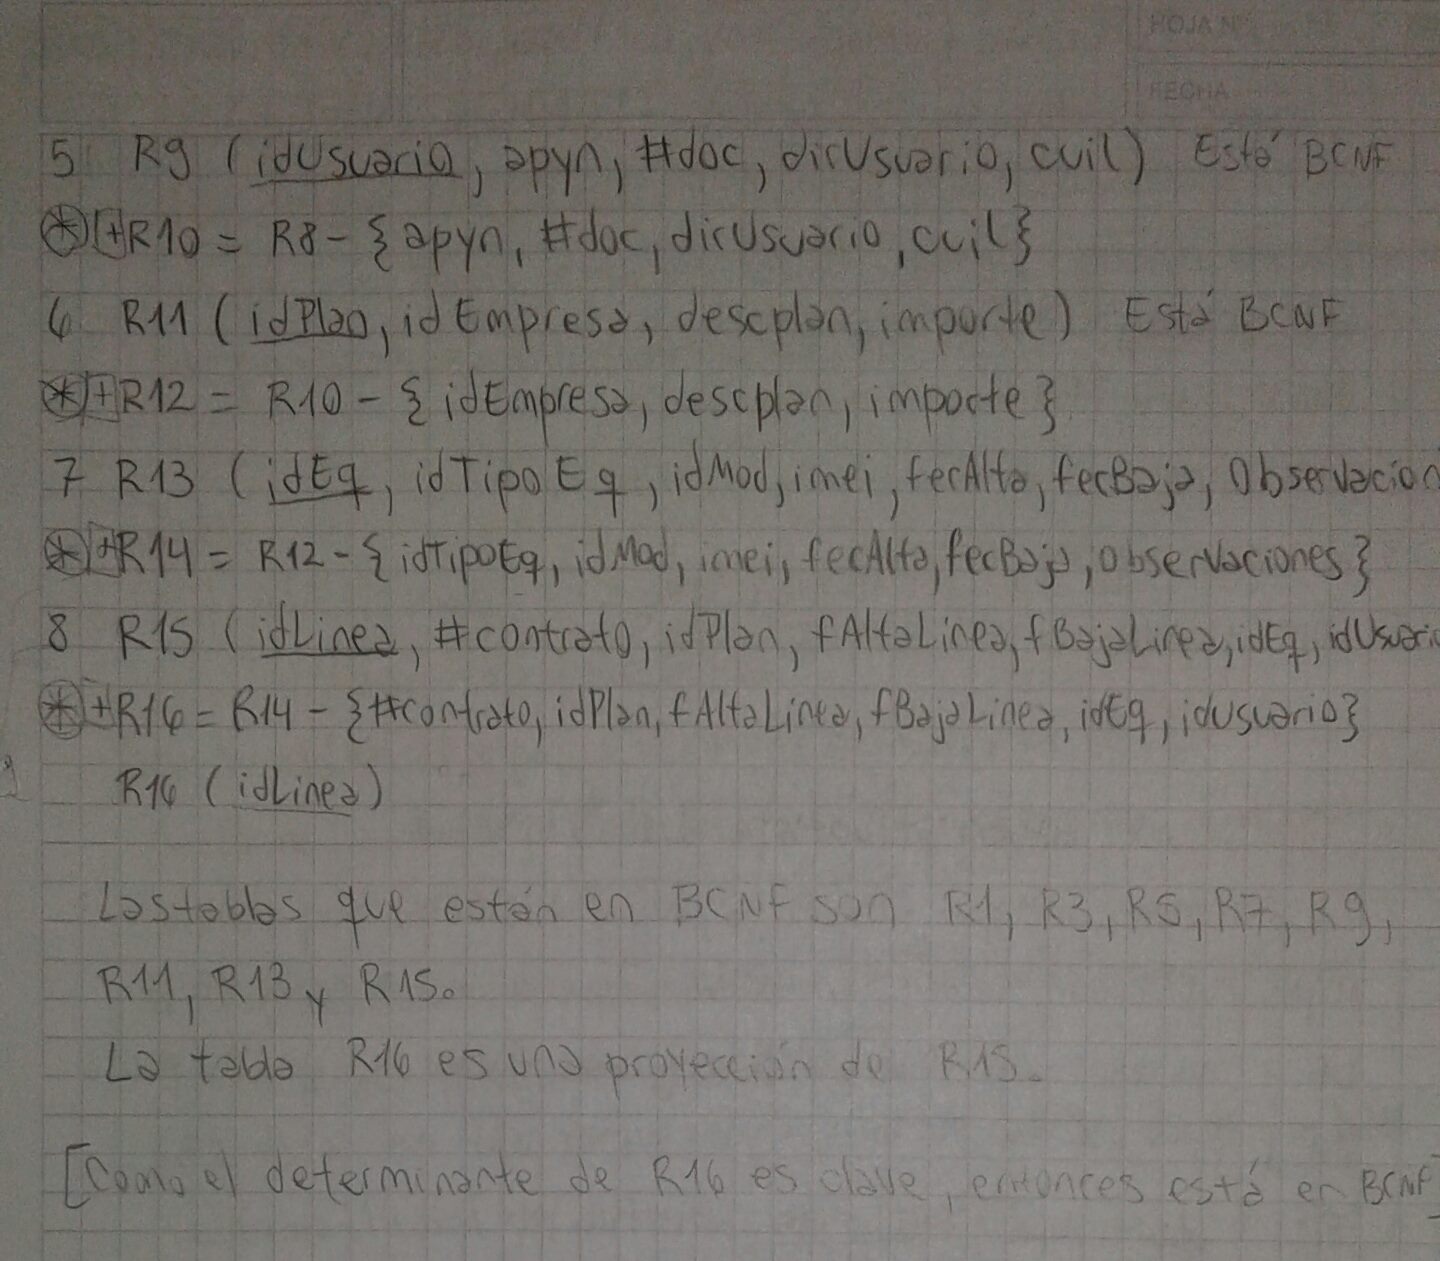 HOJA N
FECHA
5 R9 (idUsuario, apyn, #doc, dirUsuario, cuil) Está BCNF
* + R10 = R8 - {apyn, #doc, dirUsuario, cuil}
6 R11 (idPlan, idEmpresa, descplan, importe) Está BCNF
* + R12 = R10 - {idEmpresa, descplan, importe}
7 R13 (idEq, idTipoEq, idMod, imei, fecAlta, fecBaja, Observacion
* + R14 = R12 - {idTipoEq, idMod, imei, fecAlta, fecBaja, observaciones}
8 R15 (idLinea, #contrato, idPlan, fAltaLinea, fBajaLinea, idEq, idUsuario
* + R16 = R14 - {#contrato, idPlan, fAltaLinea, fBajaLinea, idEq, idUsuario}
R16 (idLinea)
Las tablas que están en BCNF son R1, R3, R5, R7, R9,
R11, R13 y R15.
La tabla R16 es una proyección de R15.
[Como el determinante de R16 es clave, entonces está en BCNF]